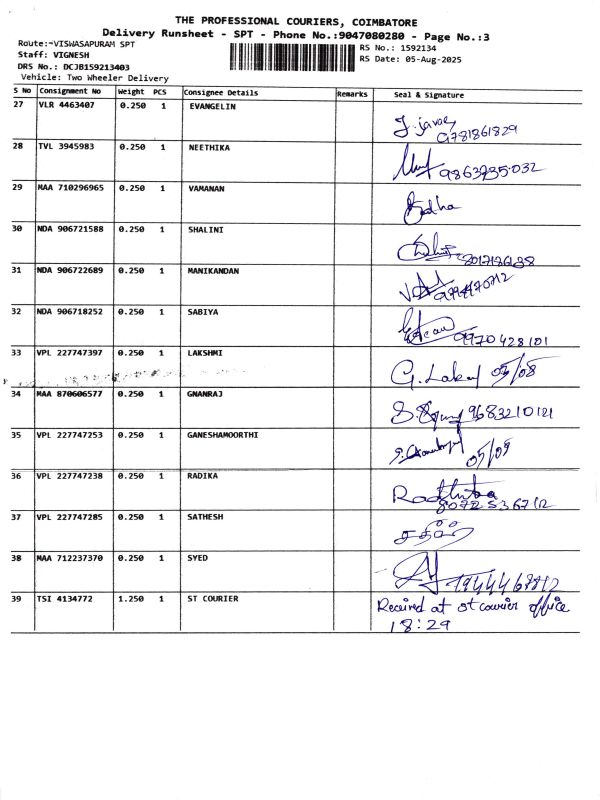 THE PROFESSIONAL COURIERS, COIMBATORE
Delivery Runsheet - SPT - Phone No.:9047080280 - Page No.:3
Route:~VISWASAPURAM SPT
Staff: VIGNESH
DRS No.: DCJB159213403
Vehicle: Two Wheeler Delivery
RS No.: 1592134
RS Date: 05-Aug-2025
S No Consignment No Weight PCS Consignee Details Remarks Seal & Signature
27 VLR 4463407 0.250 1 EVANGELIN
9781861829
28 TVL 3945983 0.250 1 NEETHIKA
9863735032
29 MAA 710296965 0.250 1 VAMANAN
30 NDA 906721588 0.250 1 SHALINI
31 NDA 906722689 0.250 1 MANIKANDAN
32 NDA 906718252 0.250 1 SABIYA
9970428101
33 VPL 227747397 0.250 1 LAKSHMI
05/08
34 MAA 870606577 0.250 1 GNANRAJ
9683210121
35 VPL 227747253 0.250 1 GANESHAMOORTHI
36 VPL 227747238 0.250 1 RADIKA
8072536712
37 VPL 227747285 0.250 1 SATHESH
38 MAA 712237370 0.250 1 SYED
39 TSI 4134772 1.250 1 ST COURIER
Received at st courier office
18:29